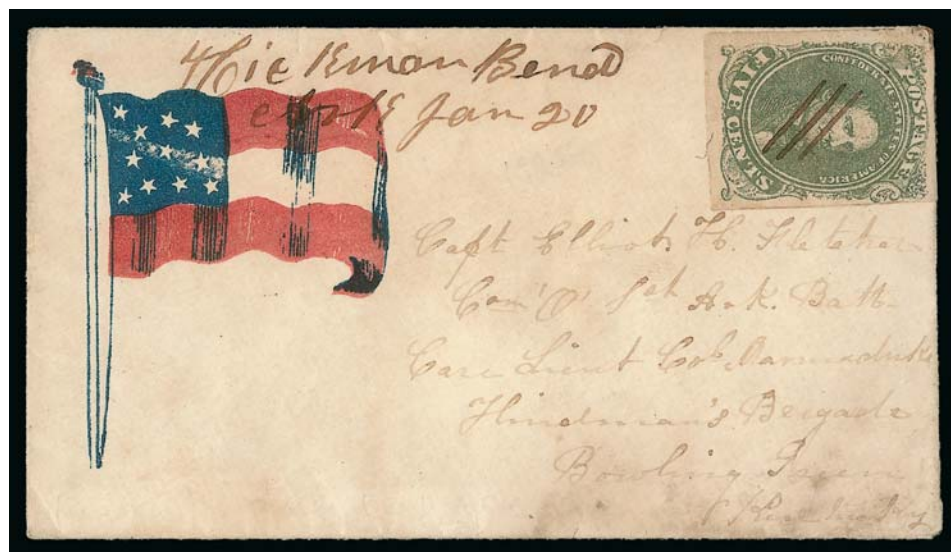 Hickman Bend
Ark Jan 20
POSTAGE
CONFEDERATE STATES OF AMERICA
FIVE CENTS
Capt Elliot H. Fletcher
Com' 'D' 1st Ark. Batt.
Care Lieut Col. Marmaduke
Hindman's Brigade
Bowling Green
Kentucky